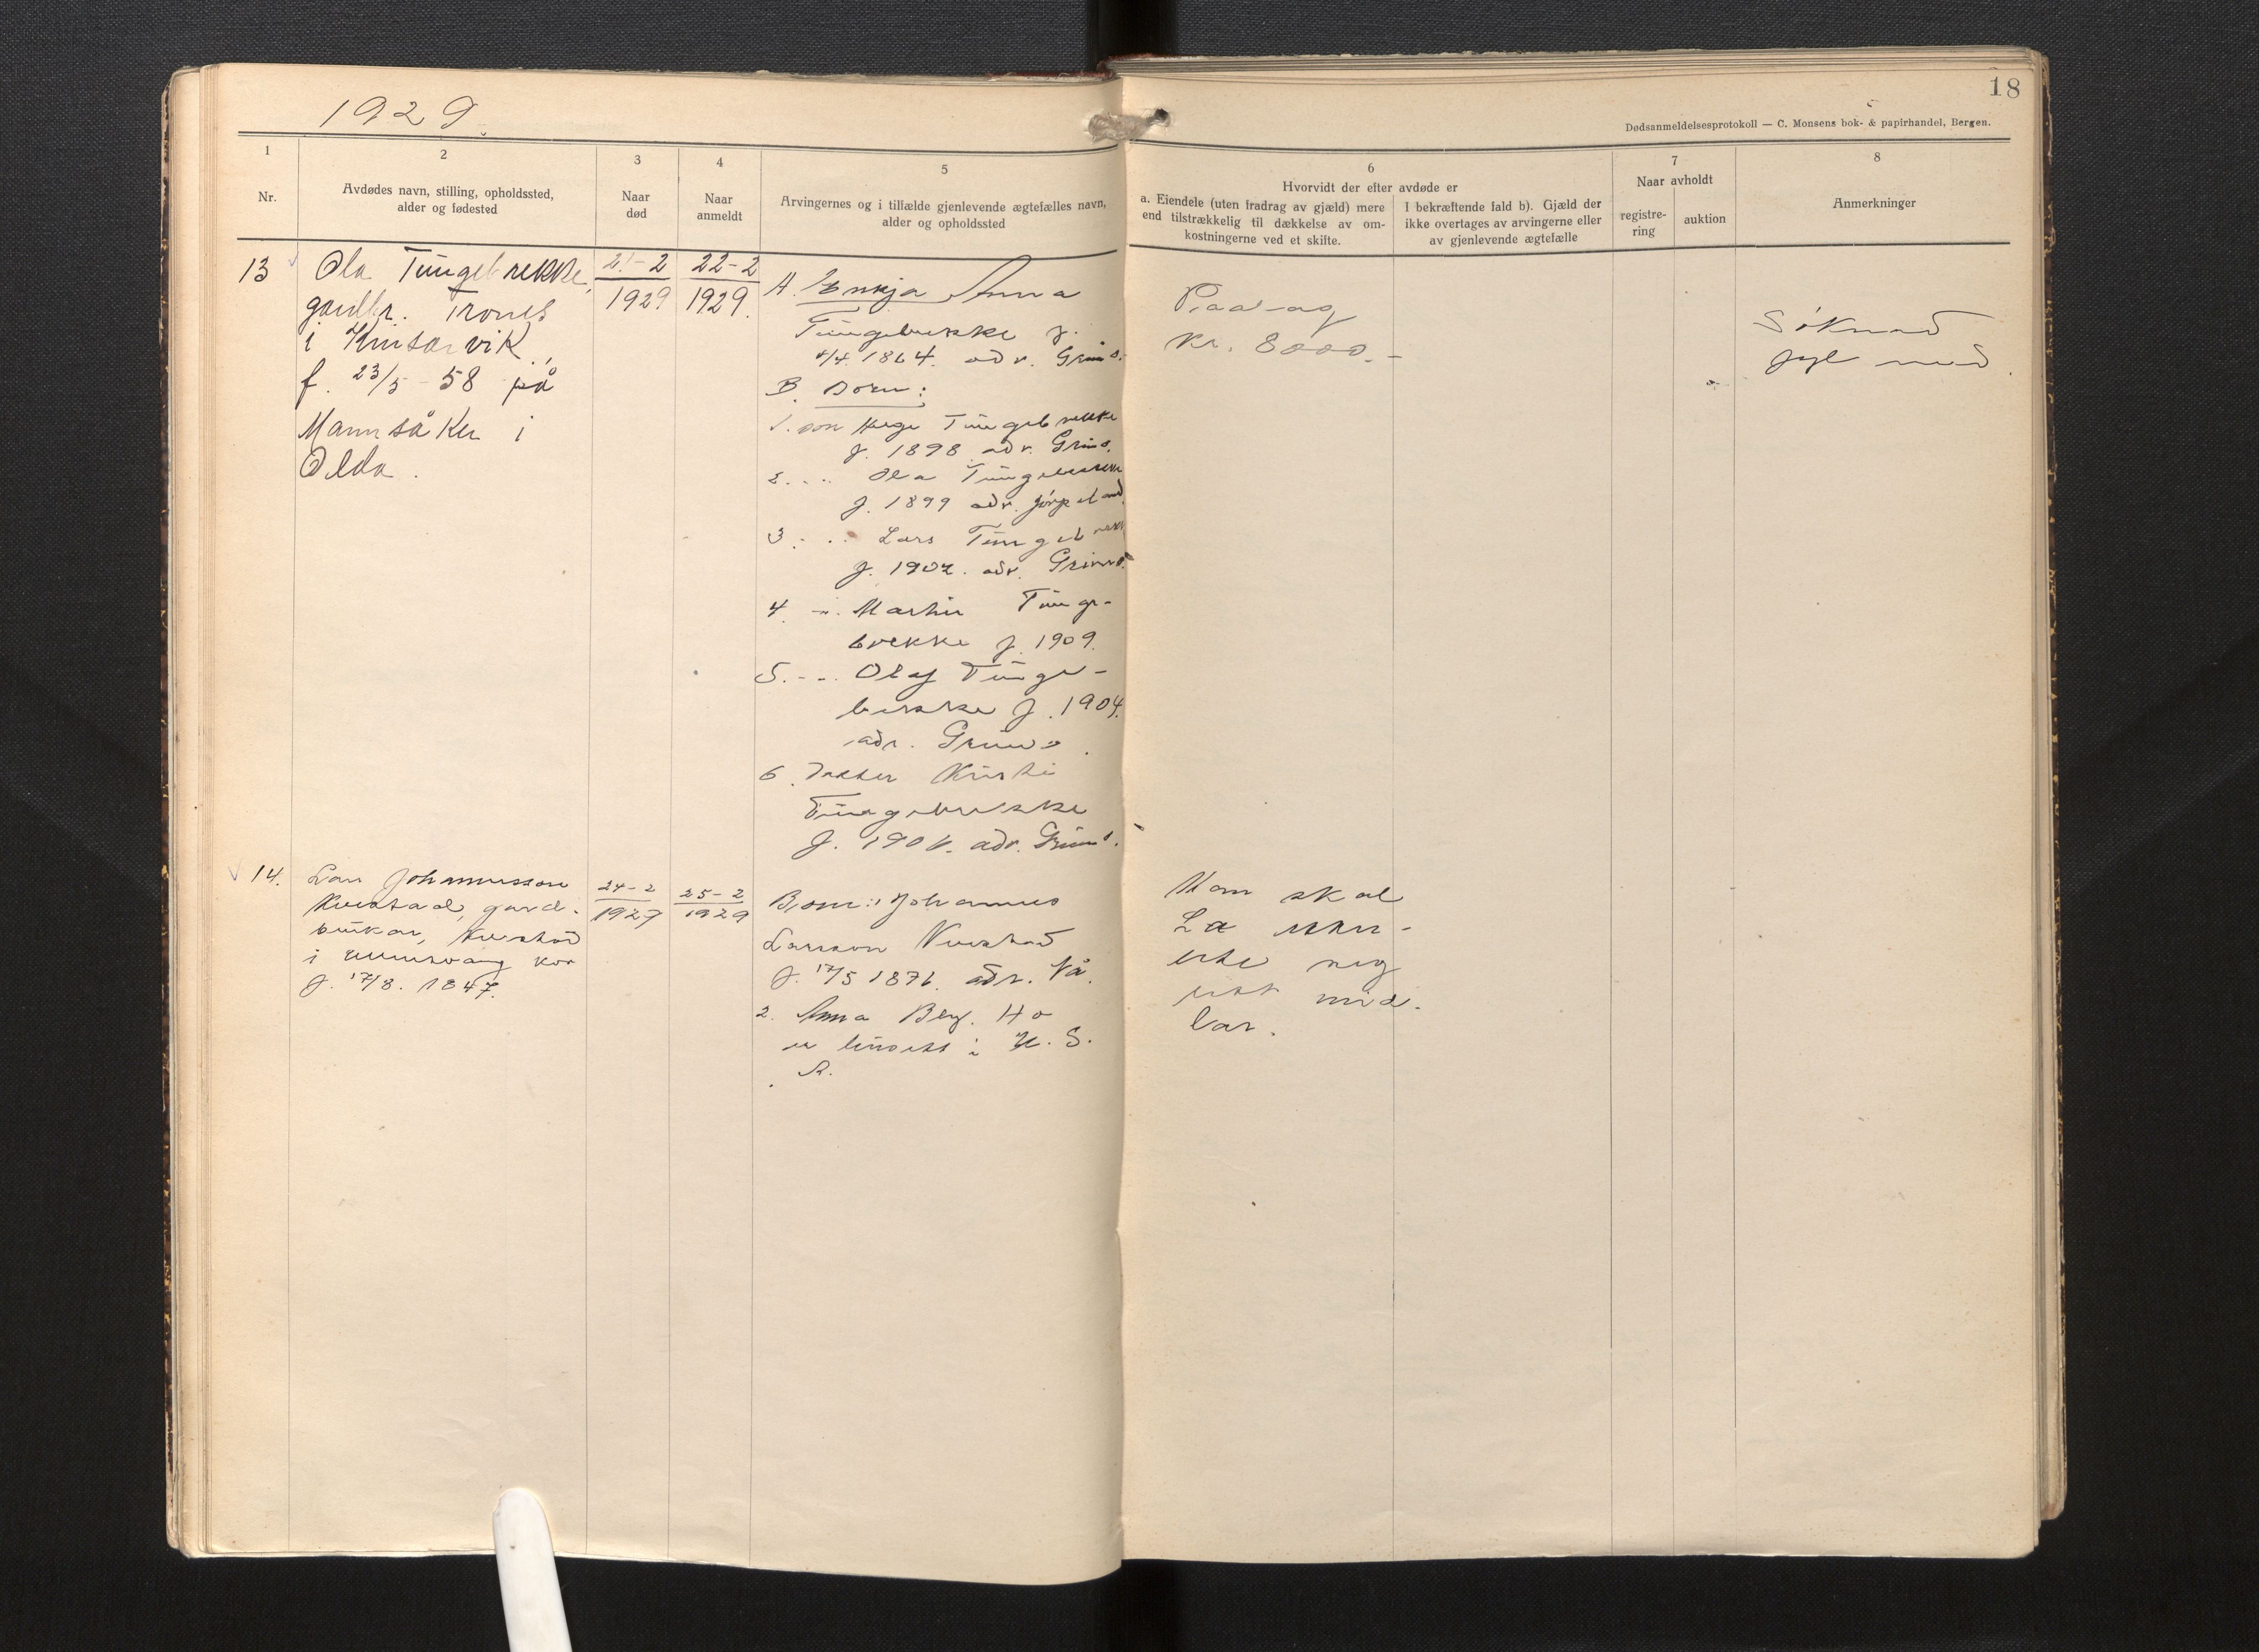 1929.
18
Dødsanmeldelsesprotokoll — C. Monsens bok- & papirhandel, Bergen.
1
Nr.
2
Avdødes navn, stilling, opholdssted,
alder og fødested
3
Naar
død
4
Naar
anmeldt
5
Arvingernes og i tilfælde gjenlevende ægtefælles navn,
alder og opholdssted
6
Hvorvidt der efter avdøde er
a. Eiendele (uten fradrag av gjæld) mere
end tilstrækkelig til dækkelse av om-
kostningerne ved et skifte.
I bekræftende fald b). Gjæld der
ikke overtages av arvingerne eller
av gjenlevende ægtefælle
7
Naar avholdt
registre-
ring
auktion
8
Anmerkninger
13
Ola Tungebrekke,
gardbr. Trones
i Kinsarvik,
f. 23/5 - 58 på
Mannsåker i
Odda.
21-2
1929
22-2
1929.
A. Enkja Anna
Tungebrekke f.
1864. adr. Grimo.
B. Born:
1. son Helge Tungebrekke
f. 1898 adr. Grimo.
2. - - Ola Tungebrekke
f. 1899 adr. Jørpeland
3. - - Lars Tungebrekke
f. 1902. adr. Grimo.
4. - - Martin Tunge-
brekke f. 1909.
5. - - Olaf Tunge-
brekke f. 1904.
adr. Grimo.
6. Dotter Kristi
Tungebrekke
f. adr. Grimo.
Kr. 8000.-
Søknad
fyl med.
14.
Lars Johannesson
Kvestad, gard-
brukar, Kvestad
i Ullensvang
f. 17/8. 1847.
24-2
1929
25-2
1929
Born: 1 Johannes
Larsson Kvestad
f. 17/5 1876. adr. Nå.
2. Anna Berg. Ho
er busett i U. S.
A.
Han skal
La
etter seg
litt mid-
lar.